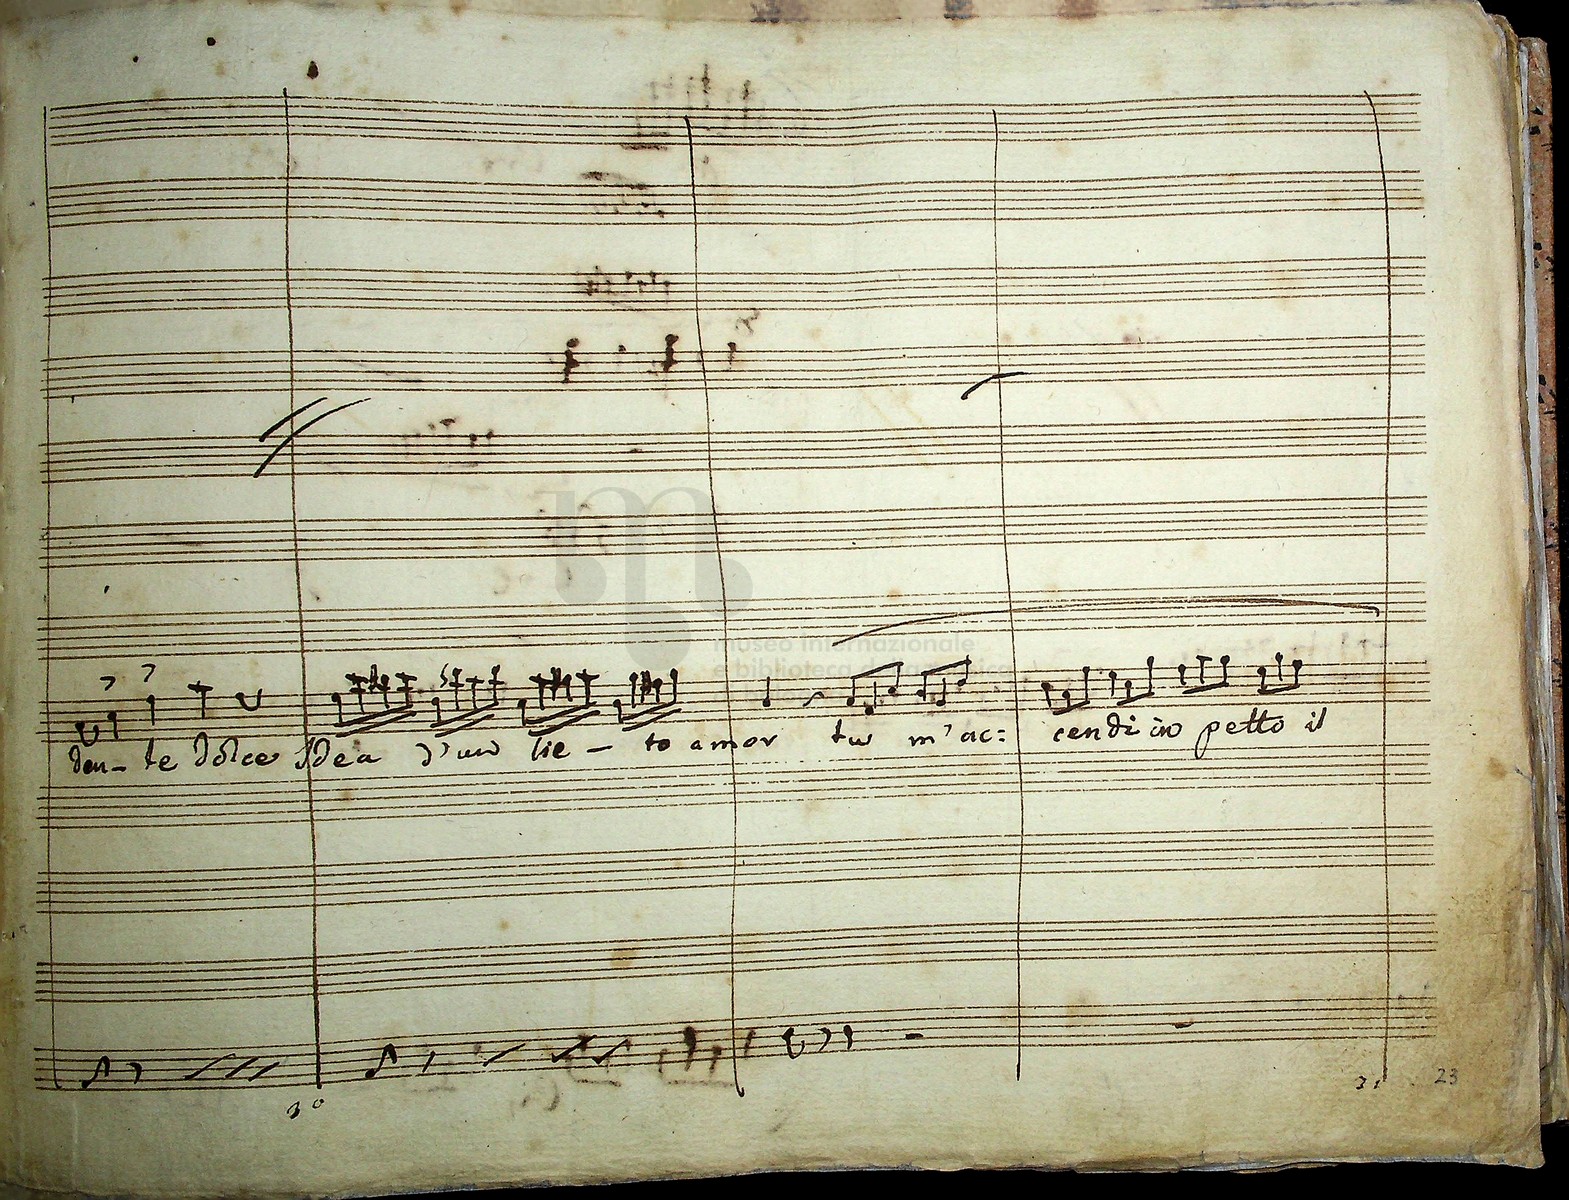 museo internazionale
e biblioteca della musica
den- te dolce Idea d'un lie - to amor tu m'ac: cendi in petto il
30
31 23